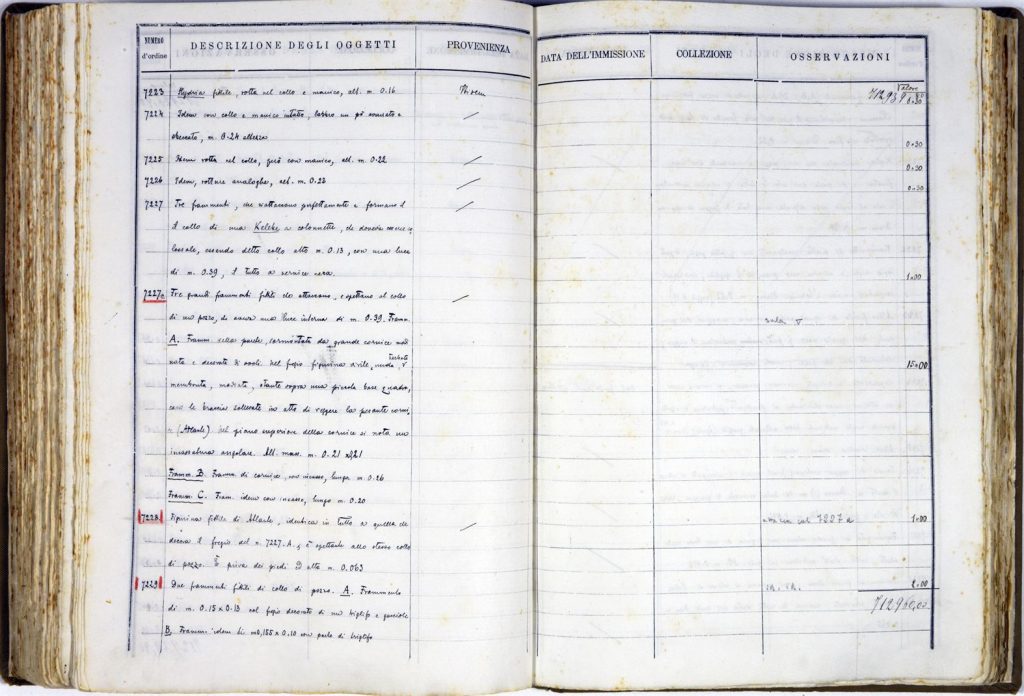 NUMERO d'ordine DESCRIZIONE DEGLI OGGETTI PROVENIENZA DATA DELL'IMMISSIONE COLLEZIONE OSSERVAZIONI
Valore
7223 Hydria fittile, rotta nel collo e manico, alt. m. 0.16 Idem 712939.80 0.30
7224 Idem con collo e manico intatto, labbro un pò
sbeccato, m. 0.24 altezza 0.30
7225 Idem rotta nel collo, però con manico, alt. m. 0.22 0.30
7226 Idem, rotture analoghe, alt. m. 0.23 0.30
7227 Tre frammenti, che riattaccano perfettamente e formano
il collo di una Kelebe a colonnette, che doveva essere co
lossale, essendo detto collo alto m. 0.13, con una luce
di m. 0.39, il tutto a vernice nera. 1.00
7227a Tre grandi frammenti fittili che attaccano, e spettano al collo
di un pozzo, che aveva una luce interna di m. 0.39. Framm.
sala V
A. Framm. della parte, sormontata da grande cornice modi
nata e decorata di ovoli. Nel fregio figurina virile, nuda, barbata 15.00
membruta, stante sopra una piccola base quadra,
con le braccia sollevate in atto di reggere la pesante corni
ce (Atlante). Nel piano superiore della cornice si nota un
incassatura angolare. Alt. mass. m. 0.21 x 0.21
Framm. B. Framm. di cornice, con incasso, lungo m. 0.26
Framm. C. Fram. idem con incasso, lungo m. 0.20
7228 Figurina fittile di Atlante, identica in tutto a quella che 7227a 1.00
decora il fregio del n. 7227. A, e spettante allo stesso collo
di pozzo. È priva dei piedi ed alta m. 0.063
7229 Due frammenti fittili di collo di pozzo. A. Frammento 2.00
di m. 0.15 x 0.13 col fregio decorato di un triglifo e 712960,00
B. Framm. idem di m 0,155 x 0.10 con parte di triglifo